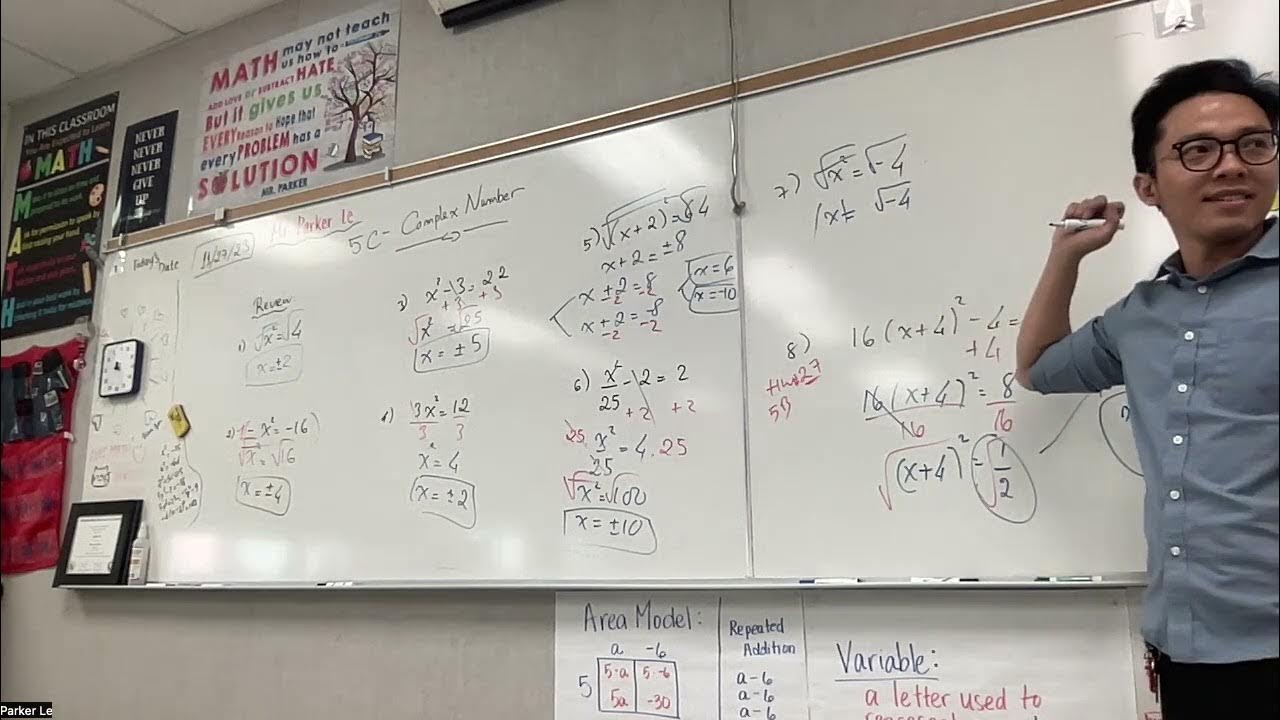 IN THIS CLASSROOM
You Are Expected to Learn
MATH
M
A
T
H
NEVER
NEVER
NEVER
GIVE
UP
MATH may not teach
us how to
ADD LOVE or SUBTRACT HATE
But it gives us
EVERY Reason to Hope that
every PROBLEM has a
SOLUTION
MR. PARKER
Today's Date
11/27/23
Mr Parker Le
5C - Complex Number
Review
1) √x² = √4
x = ±2
2) - x² = -16
√x² = √16
x = ±4
3) x² - 3 = 22
+ 3 + 3
√x² = 25
x = ± 5
4) 3x² = 12
3 3
x² = 4
x = ± 2
5) √(x + 2)² = 64
x + 2 = ± 8
x + 2 = 8
-2 -2
x + 2 = -8
-2 -2
x = 6
x = -10
6) x²/25 - 2 = 2
+ 2 + 2
25. x²/25 = 4 . 25
√x² = √100
x = ± 10
7) √x² = √-4
|x| = √-4
8) 16 (x + 4)² - 4 =
+ 4
16 (x + 4)² = 8
16 16
√(x + 4)² = √1/2
5B
Area Model:
a -6
5
5·a 5·-6
5a -30
Repeated
Addition
a - 6
a - 6
a - 6
Variable:
a letter used to
Parker Le